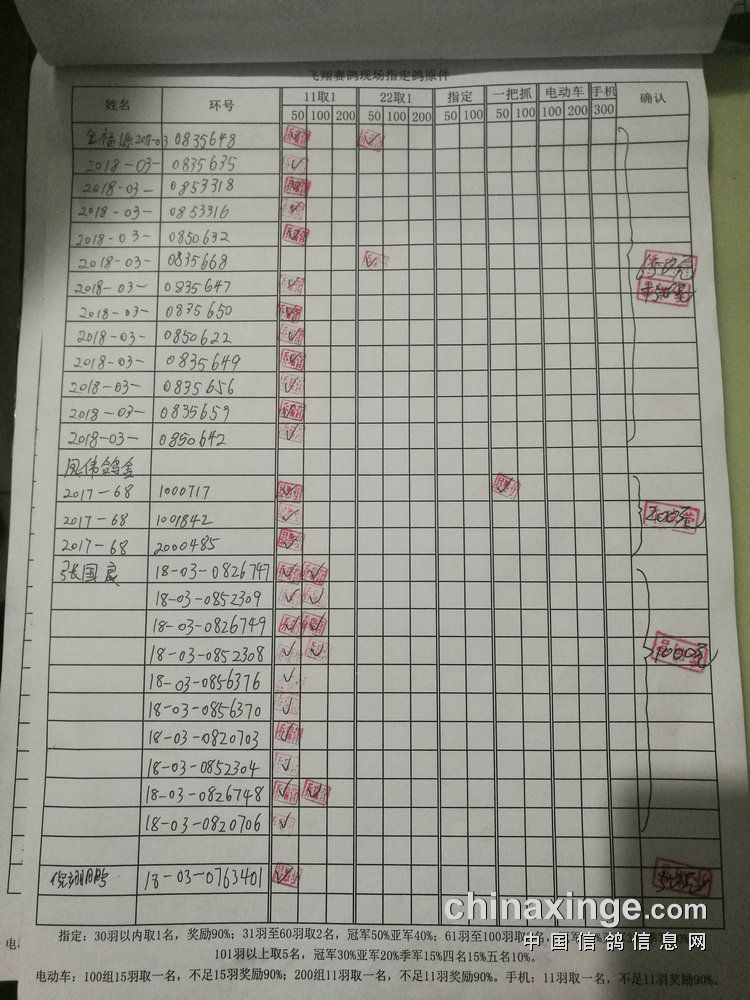 飞翔赛鸽现场指定鸽原件
姓名 环号 11取1 22取1 指定 一把抓 电动车 手机 确认
50 100 200 50 100 200 50 100 50 100 100 200 300
金福源 2018-03 0835648
2018-03- 0835635
2018-03- 0853318
2018-03- 0853316
2018-03- 0850632
2018-03- 0835668
2018-03- 0835647
2018-03- 0835650
2018-03- 0850622
2018-03- 0835649
2018-03- 0835656
2018-03- 0835659
2018-03- 0850642
伟鸽舍
2017-68 1000717
2017-68 1001842
2017-68 2000485
200元
张国良 18-03-0826747
18-03-0852309
18-03-0826749
18-03-0852308
1000元
18-03-0856376
18-03-0856370
18-03-0820703
18-03-0852304
18-03-0826748
18-03-0820706
倪翔鹏 18-03-0763401
chinaxinge.com
中国信鸽信息网
指定：30羽以内取1名，奖励90%；31羽至60羽取2名，冠军50%亚军40%；61羽至100羽取
101羽以上取5名，冠军30%亚军20%季军15%四名15%五名10%。
电动车：100组15羽取一名，不足15羽奖励90%；200组11羽取一名，不足11羽奖励90%。手机：11羽取一名，不足11羽奖励90%。